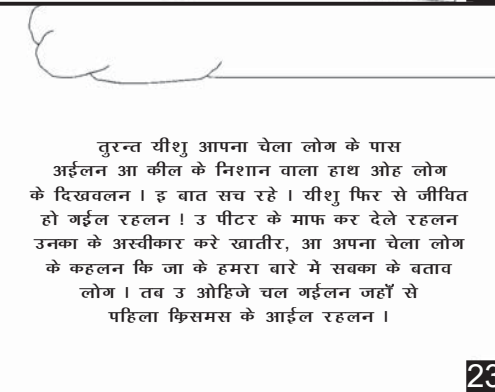 तुरन्त यीशु आपना चेला लोग के पास
अईलन आ कील के निशान वाला हाथ ओह लोग
के दिखवलन । इ बात सच रहे । यीशु फिर से जीवित
हो गईल रहलन ! उ पीटर के माफ कर देले रहलन
उनका के अस्वीकार करे खातीर, आ अपना चेला लोग
के कहलन कि जा के हमरा बारे में सबका के बताव
लोग । तब उ ओहिजे चल गईलन जहाँ से
पहिला क्रिसमस के आईल रहलन ।
23